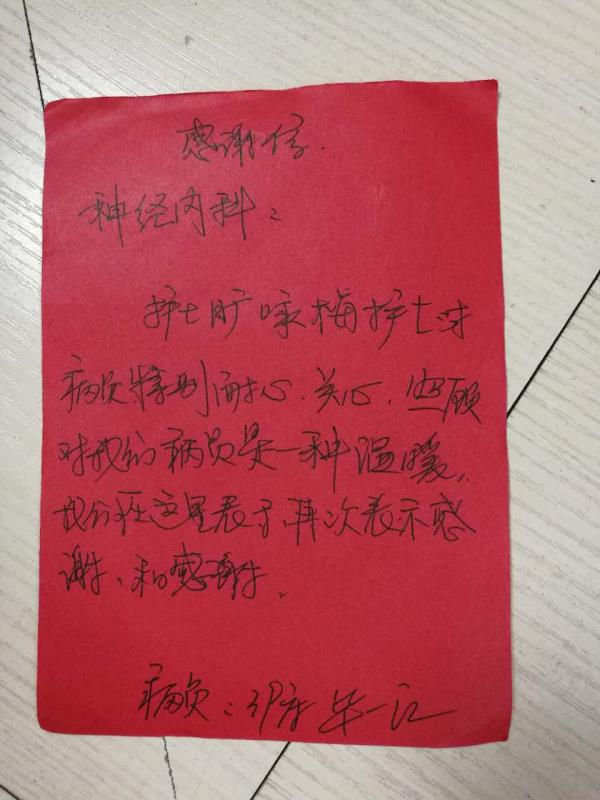 感谢信.
神经内科：
护士旷咏梅护士对
病员特别耐心、关心、照顾
对我们病员是一种温暖，
我们在这里表示再次表示感
谢、和感谢。
病员：39床 毕一江